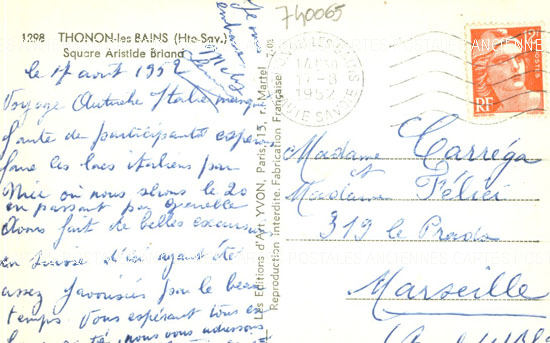 1298 THONON-les BAINS (Hte-Sav.)
Square Aristide Briand
le 17 avril 1952
Voyage Autriche Italie manqué
faute de participants espér
faire les lacs italiens par
Nice où nous serons le 20
en passant par Grenoble
Avons fait de belles excursions
en Suisse d'ici ayant été
assez favorisés par le beau
temps. Vous espérant tous en
santé, nous vous adressons
Je vous
embrasse
740065
7-03
Les Editions d'Art YVON, Paris, 15, r. Martel
Reproduction interdite. Fabrication Française
THONON LES BAINS
17-8
1952
HAUTE SAVOIE
POSTES
RF
Madame Carréga
et
Madame Félici
319 le Prado
Marseille